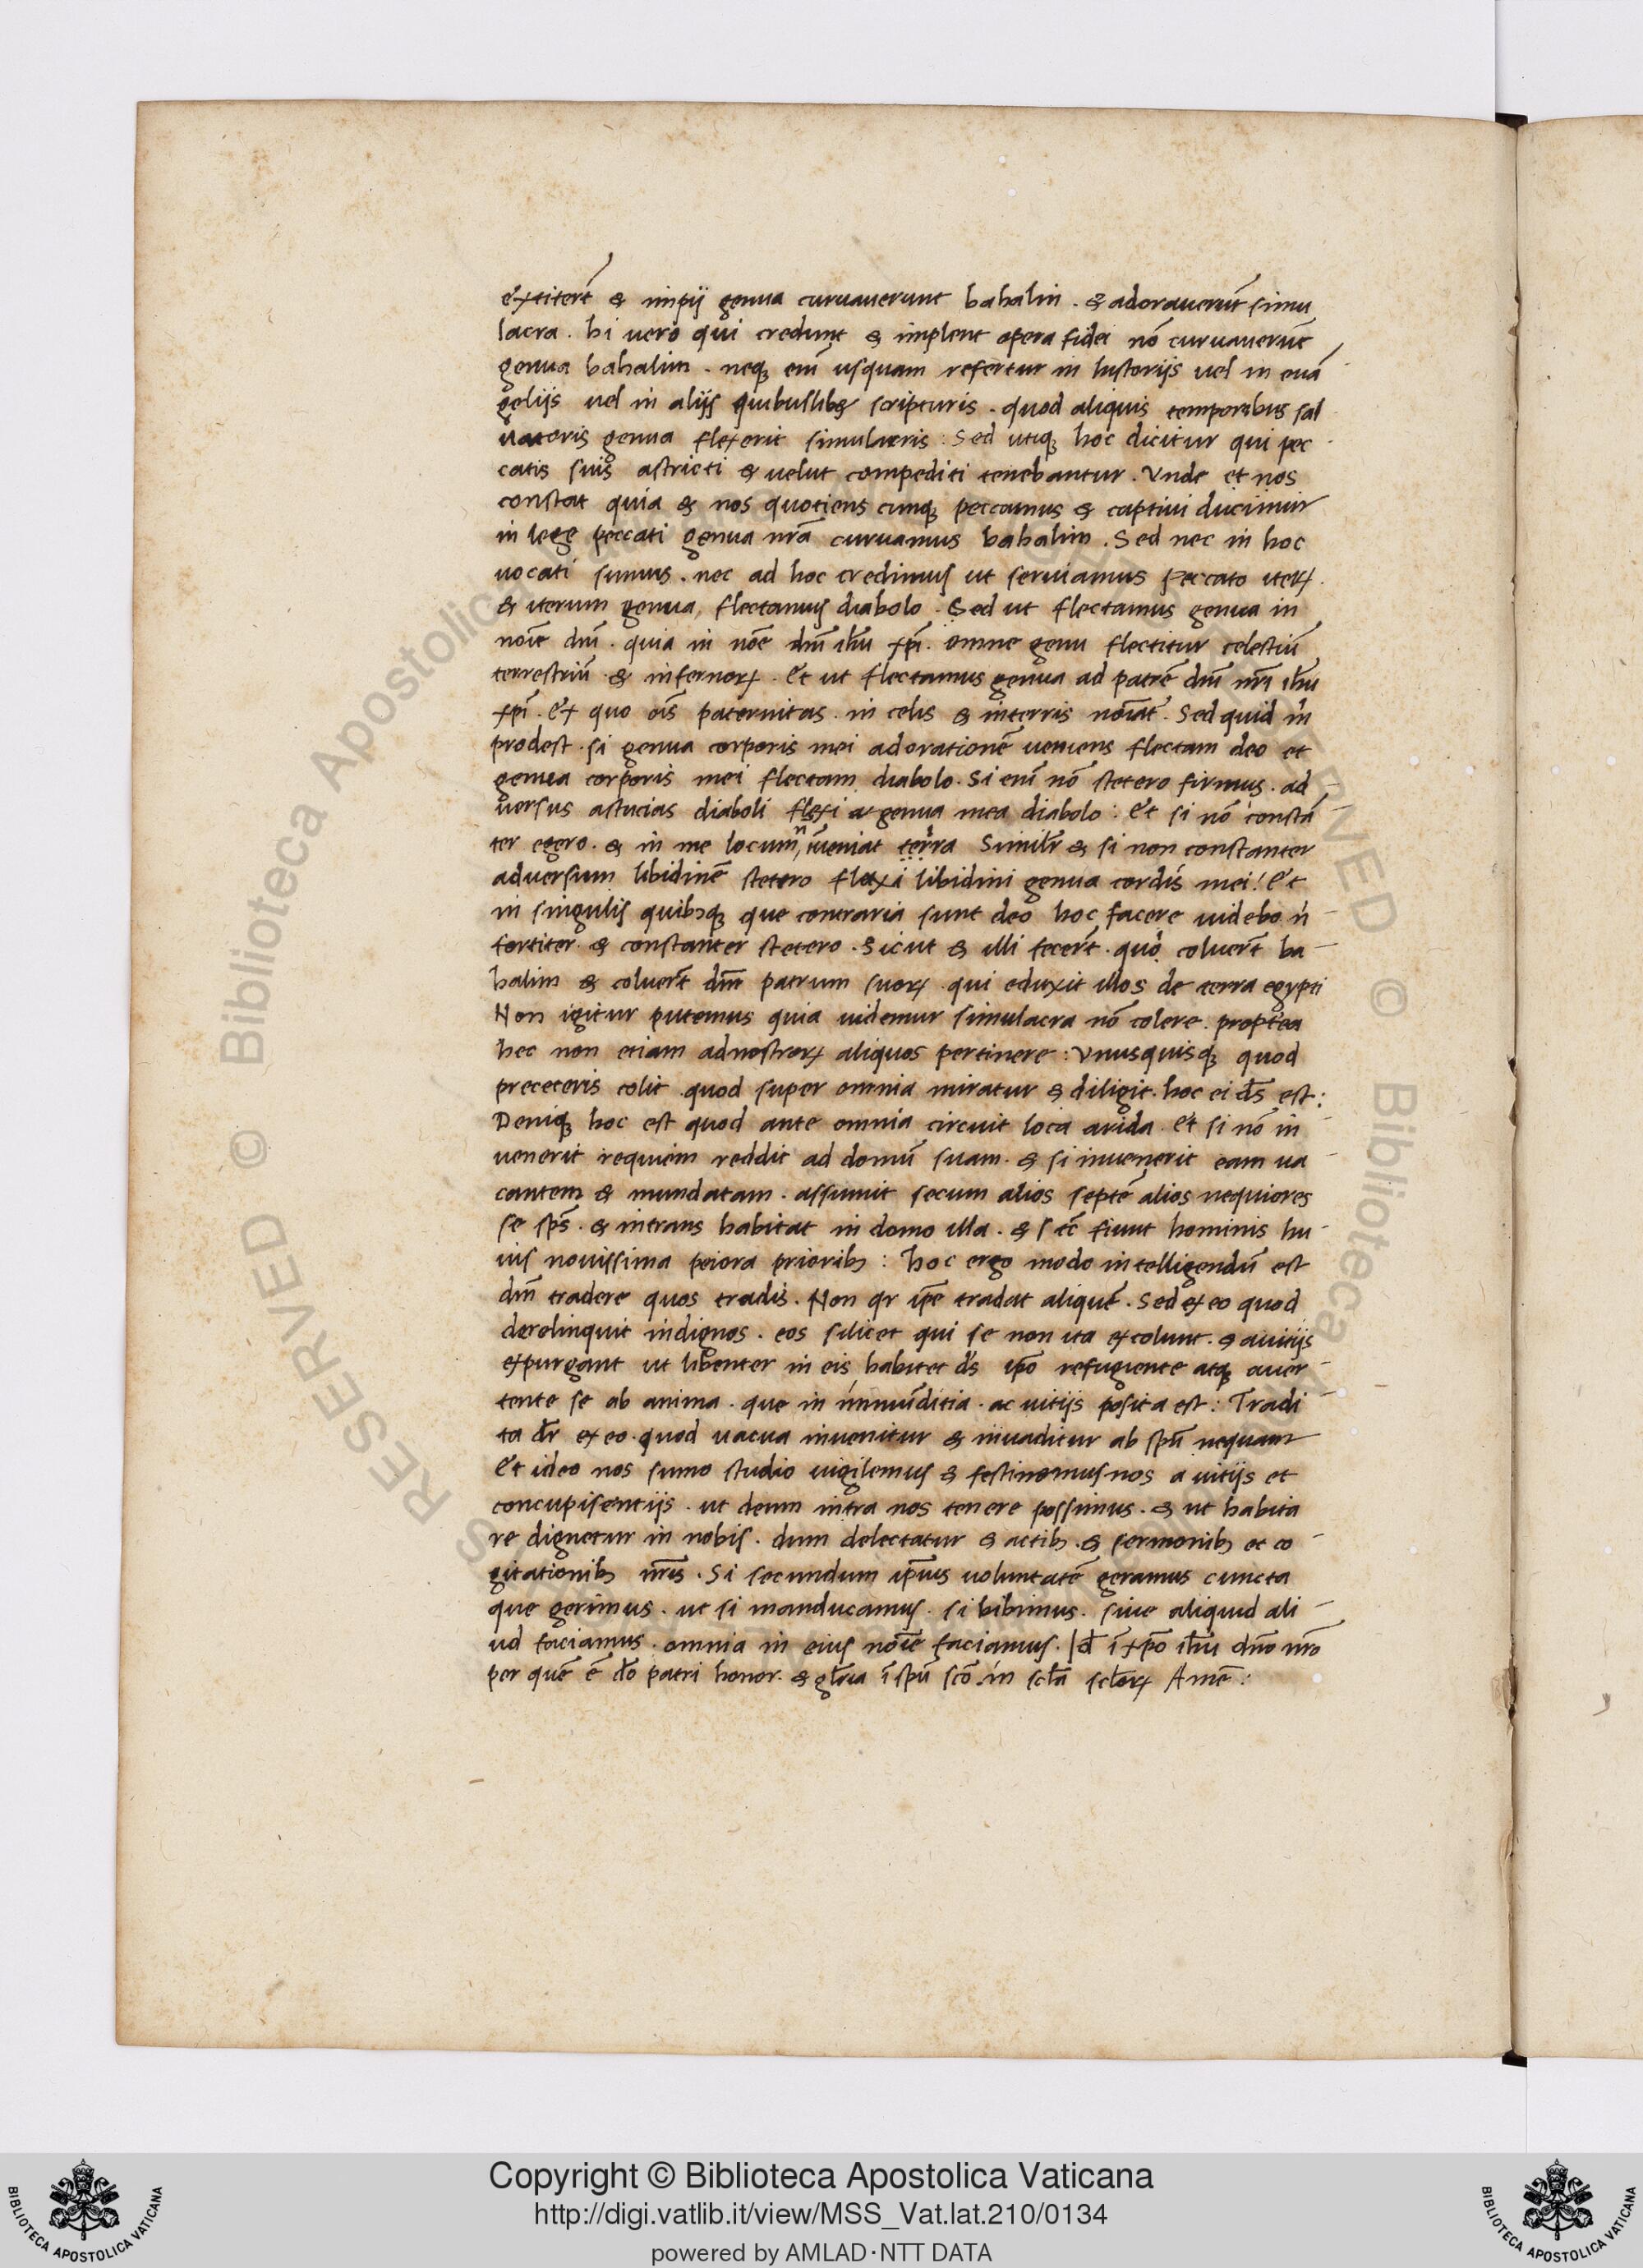 extiterт̄ & impij genua curuauerunt bahalin . & adorauerūt simu
lacra . hi uero qui credunt & implent opera fidei nō curuauerūt
genua bahalim . neq̨ eni᷒̄ usquam refertur in historijs uel in euā
gelijs uel in alijs quibuslibꝫ scripturis . quod aliquis temporibus sal
uatoris genua flexerit simulacris : Sed utiq̨ hoc dicitur qui pec
catis suis astricti & uelut compediti tenebantur . Vnde et nos
constat quia & nos quotiens cunq̨ peccamus & captiui ducimur
in lege peccati genua nr̄a curuamus bahalim . Sed nec in hoc
uocati sumus . nec ad hoc credimus ut seruiamus peccato iteꝝ .
& iterum genua flectamus diabolo . Sed ut flectamus genua in
noīe dn̄i . quia in noīe dn̄i ihū xp̄i . omne genu flectitur celestiū
terrestriū & infernoꝝ . Et ut flectamus genua ad patrē dn̄i nr̄i ihū
xp̄i . Ex quo oīs paternitas . in celis & in terris noīat̄ . Sed quid m̄
prodest . si genua corporis mei ad orationē ueniens flectam deo et
genua corporis mei flectam diabolo . Si eni nō stetero firmus . ad
uersus astucias diaboli flexi genua mea diabolo : Et si nō constā
ter egero . & in me locum n̄ ueniat terra Similr̄ & si non constanter
aduersum libidinē stetero flexi libidini genua cordis mei ! Et
in singulis quibꝫq̨ que contraria sunt deo hoc facere uidebo n̄
fortiter & constanter stetero . Sicut & illi fecer̄t . quō coluer̄t ba
halim & coluer̄t dm̄ patrum suoꝝ . qui eduxit illos de terra egypti
Non igitur putemus quia uidemur simulacra nō colere . propterea
hec non etiam ad nostroꝝ aliquos pertinere : Vnusquisq̨ quod
preceteris colit . quod super omnia miratur & diligit . hoc ei ds̄ est :
Deniq̨ hoc est quod ante omnia circuit loca arida . Et si nō in
uenerit requiem reddit ad domū suam . & si inuenerit eam ua
cantem & mundatam . assumit secum alios septē alios nequiores
se sp̄s . & intrans habitat in domo illa . & fiunt hominis hu
ius nouissima peiora prioribꝫ : hoc ergo modo intelligendū est
dm̄ tradere quos tradis . Non qr ip̄e tradat aliquē . Sed ex eo quod
derelinquit indignos . eos silicet qui se non ita excolunt . & auitijs
expurgant ut libenter in eis habitet ds̄ ip̄o refugiente atq̨ auer
tente se ab anima . que in inmūditia . ac uitijs posita est : Tradi
ta dr̄ ex eo . quod uacua inuenitur & inuaditur ab spū nequam
Et ideo nos sumo studio uigilemus & festinemus nos a uitijs et
concupisentijs . ut deum intra nos tenere possimus . & ut habita
re dignetur in nobis . dum delectatur & actibꝫ . & sermonibꝫ et co
gitationibꝫ nr̄is . Si secundum ip̄ius uoluntatē geramus cuncta
que gerimus . ut si manducamus . si bibimus . siue aliquid ali
ud faciamus . omnia in eius noīe faciamus . Id ī xp̄o ihū dn̄o nr̄o
per quē ē do̅ patri honor . & gl̄ria ī spū scō . in scl̄a scl̄oꝝ Amē :
Copyright © Biblioteca Apostolica Vaticana
http://digi.vatlib.it/view/MSS_Vat.lat.210/0134
powered by AMLAD·NTT DATA
BIBLIOTECA APOSTOLICA VATICANA
BIBLIOTECA APOSTOLICA VATICANA